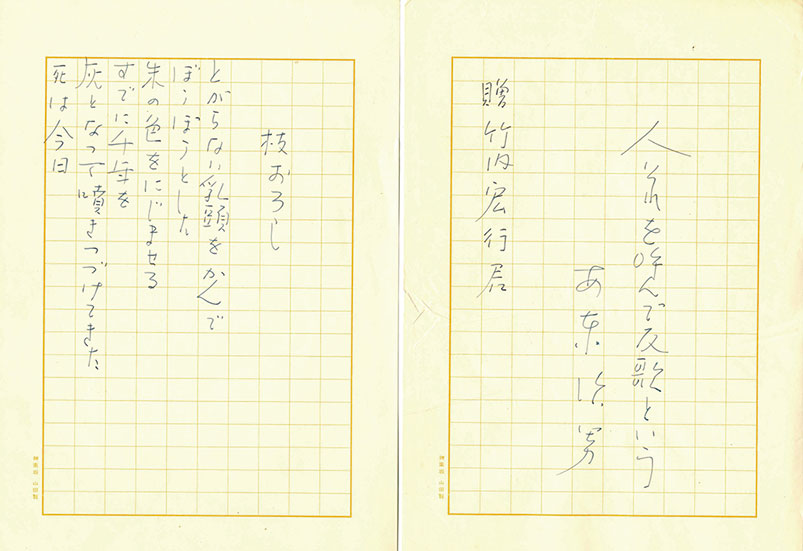 人それを呼んで反歌という
安東次男
贈 竹内宏行君
神楽坂 山田製
枝おろし
とがらない乳頭をかんで
ぼうぼうとした
朱の色をにじませる
すでに千年を
灰となって噴きつづけてきた
死は今日
神楽坂 山田製